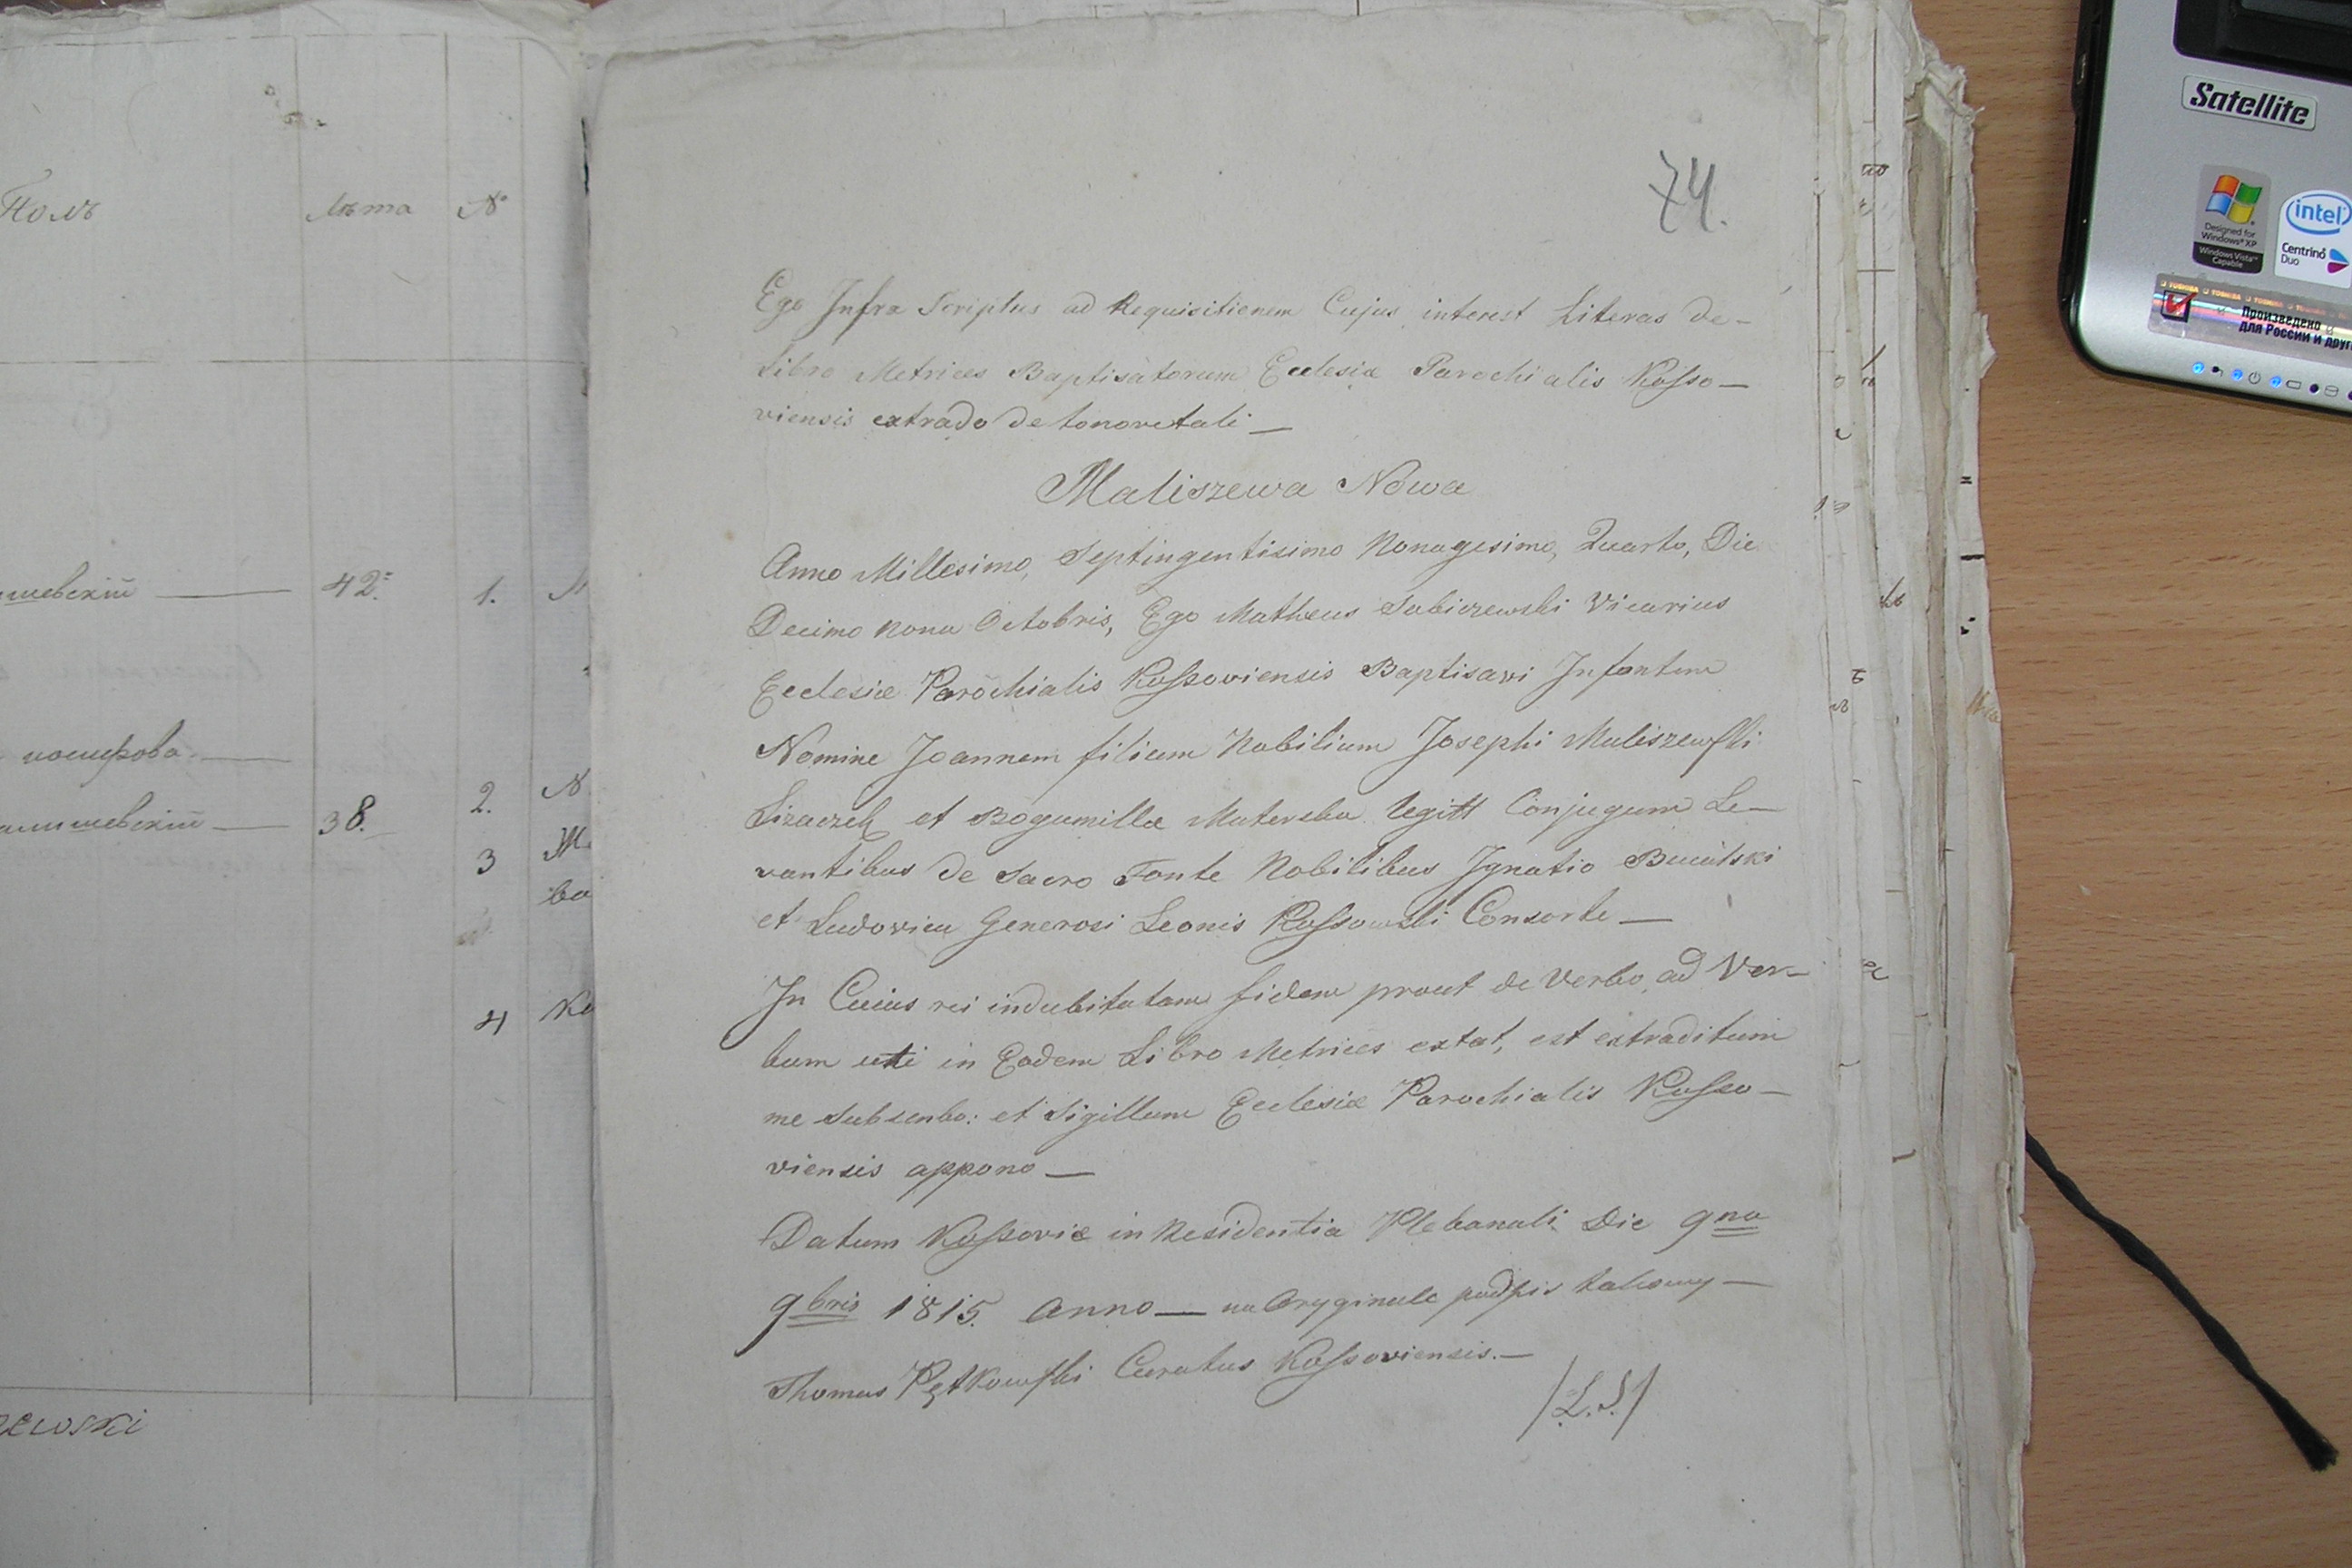 Полъ
лѣта
№
42.
1.
38.
2.
3
4
74.
Ego Infra Scriptus ad Requisitionem Cujus interest Literas de-
Libro Metrices Baptisatorum Ecclesiæ Parochialis Kosso-
viensis extrado de tenore tali
Maliszewa Nowa
Anno Millesimo, Septingentisimo Nonagesimo, Quarto, Die
Decimo nona Octobris, Ego Matheus Sabiczewski Vicarius
Ecclesiæ Parochialis Kossoviensis Baptisavi Infantem
Nomine Joannem filium Nobilium Josephi Maliszewski
et Bogumillæ Legitt Conjugum Le-
vantibus de Sacro Fonte Nobilibus Ignatio
et Ludovica Generosi Leonis Kossowski Consorte
In Cuius rei indubitatam fidem prout de Verbo ad Ver-
bum uti in Eodem Libro Metrices extat, est extraditum
me Subscribo: et Sigillum Ecclesiæ Parochialis Kosso-
viensis appono
Datum Kossoviæ in Residentia Plebanali Die 9na
9bris 1815. Anno na Oryginale podpis takowy
Thomas Pętkowski Curatus Kossoviensis.
/L.S./
Satellite
Designed for
Windows® XP
Windows Vista™
Capable
intel
Centrino
Duo
TOSHIBA TOSHIBA TOSHIBA TOSHIBA
Произведено
для России и друг